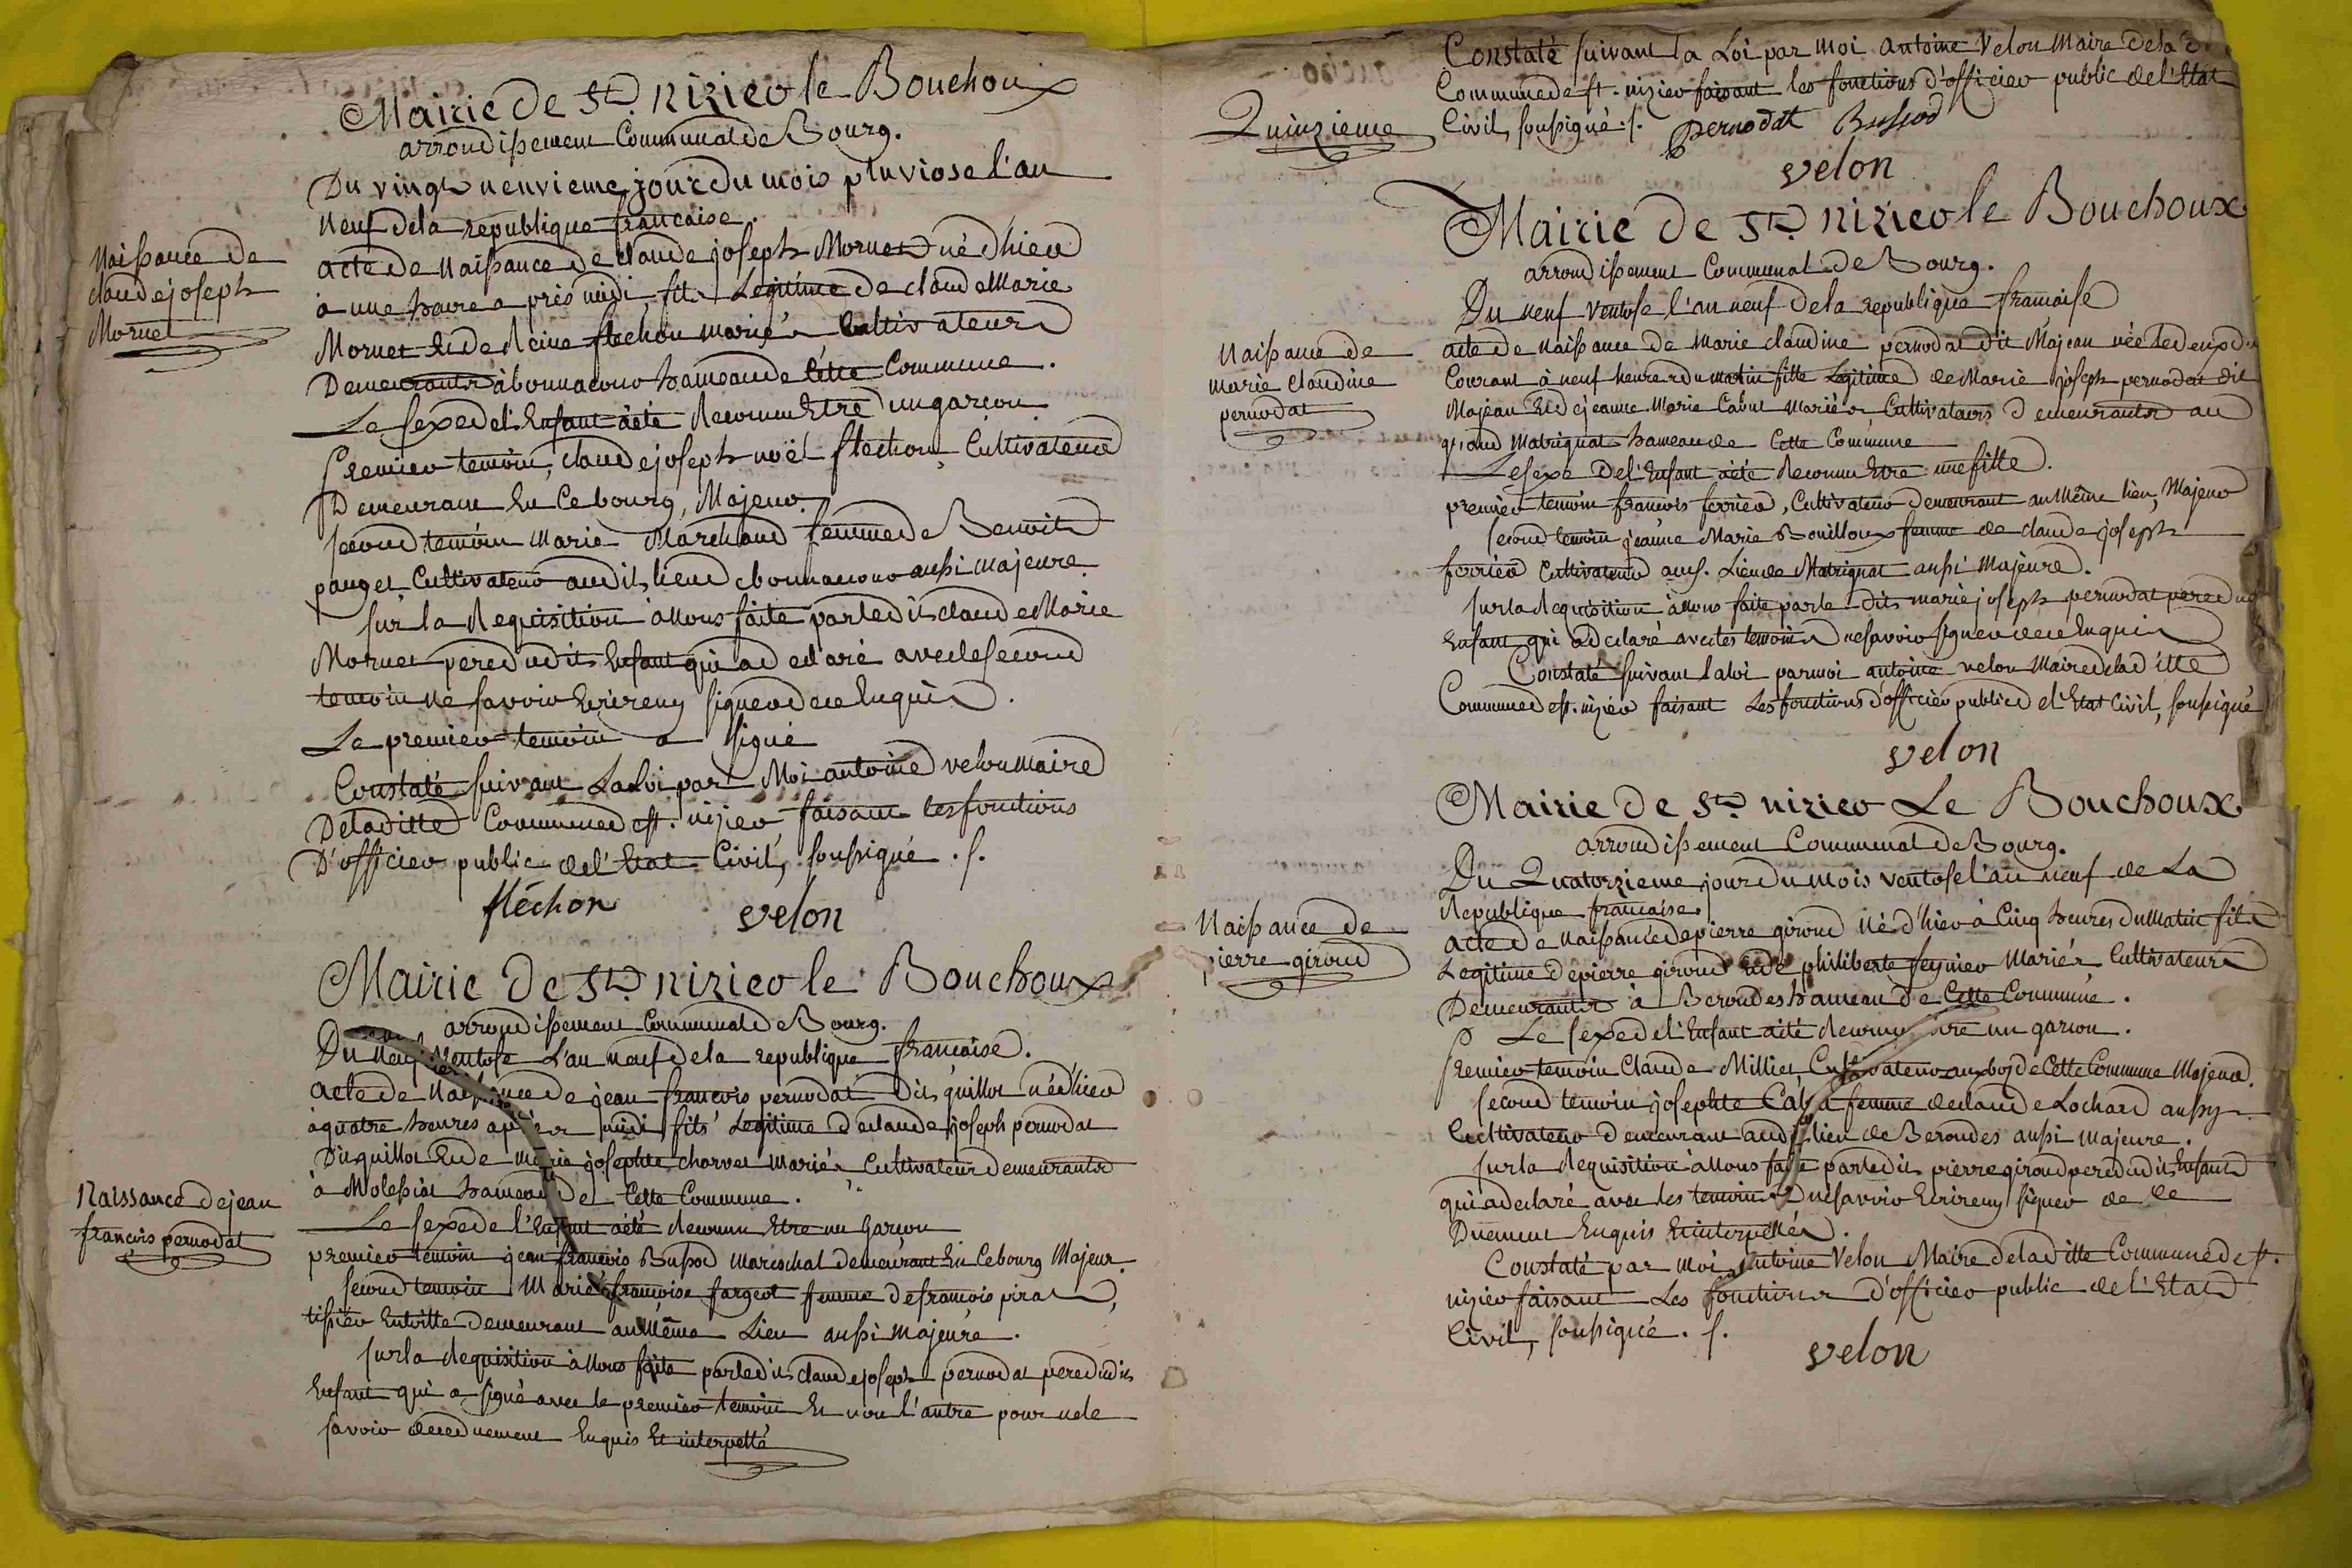 Mairie de St. nizier le Bouchoux
arrondissement Communal de Bourg.
Du vingt neuvieme jour du mois pluviose l'an
neuf de la republique francaise.
Naissance de
claude joseph
Mornet
acte de Naissance de claude joseph Mornet né d'hier
à une heure après midi, fils Legitime de claude Marie
Mornet Et de Reine flechon mariés Cultivateurs
Demeurants à bonnacour hameau de Cette Commune.
Le sexe de l'Enfant à été Reconnu Etre un garcon
Premier temoin, claude joseph noël flechon, Cultivateur
Demeurant En Ce bourg, Majeur.
second temoin Marie Marchand femme de Benoit
pauget Cultivateur audit lieu de bonnacour aussi majeure
sur la Requisition à Nous faite par ledit claude Marie
Mornet pere dudit Enfant qui a declaré avec le second
temoin ne savoir Ecrire ny signer de ce Enquis.
Le premier temoin a signé
Constaté suivant La Loi par Moi antoine velon maire
De la ditte Commune de st. nizier faisant les fonctions
D'officier public de l'Etat Civil, soussigné. s.
fléchon velon
Mairie de St. nizier le Bouchoux
arrondissement Communal de Bourg.
Du Neuf Ventose L'an neuf de la republique francaise.
acte de Naissance de jean francois pernodat Dit guillot né d'hier
à quatre heures après midi fils Legitime de claude joseph pernodat
Dit guillot Et de Marie josephte charvet Mariés Cultivateurs demeurants
à Molessiat hameau de Cette Commune.
Naissance de jean
francois pernodat
Le sexe de l'Enfant à été Reconnu Etre un Garcon
premier temoin jean francois Bussod Marechal demeurant En Ce bourg Majeur.
second temoin Marie francoise fargeot femme de francois pirat,
tissier En toille Demeurant au Même Lieu aussi Majeure.
sur la Requisition à Nous faite par ledit claude joseph pernodat pere dudit
Enfant qui a signé avec le premier temoin Et non l'autre pour ne le
savoir de ce duement Enquis Et interpellé
Constaté suivant la Loi par Moi Antoine Velon Maire de la d.
Commune de st. nizier faisant les fonctions d'officier public de l'Etat
Quinzieme
Civil, soussigné. s. pernodat Bussod
velon
Mairie de St. nizier le Bouchoux
arrondissement Communal de Bourg.
Du neuf Ventose l'an neuf de la republique francaise
Naissance de
marie claudine
pernodat
acte de Naissance de Marie claudine pernodat dit Majean née le deux du
Courant à neuf heures du matin fille Legitime de Marie joseph pernodat dit
Majean Et de jeanne Marie Cabut Mariés Cultivateurs Demeurants au
grand Matrignat hameau de Cette Commune
Le sexe De l'Enfant à été Reconnu Etre une fille.
premier temoin francois ferrier, Cultivateur demeurant au Même lieu, Majeur
second temoin jeanne Marie Bouilloux femme de claude joseph
ferrier Cultivateur aus. Lieu de Matrignat aussi Majeure.
sur la Requisition à Nous faite par le dit marie joseph pernodat pere dud.
Enfant qui a declaré avec les temoins ne savoir signer de ce Enquis
Constaté suivant la loi par moi antoine velon Maire de la ditte
Commune de st. nizier faisant Les fonctions d'officier public de l'Etat Civil, soussigné
velon
Mairie de St. nizier Le Bouchoux
arrondissement Communal de Bourg.
Du Quatorzieme jour du Mois ventose l'an neuf de La
Republique francaise.
Naissance de
pierre giroud
acte de Naissance de pierre giroud Né d'hier à Cinq heures du Matin fils
Legitime de pierre giroud Et de philiberte feynier Mariés Cultivateurs
Demeurants à Beroudes hameau de Cette Commune.
Le sexe de l'Enfant à été Reconnu Etre un garcon.
Premier temoin Claude Millier Cultivateur au boj de Cette Commune Majeur.
second temoin josephte Cabut femme de claude Lochard aussy
Cultivateur demeurant audit lieu de Beroudes aussi majeure.
sur la Requisition à Nous faite par ledit pierre giroud pere dudit Enfant
qui a declaré avec les temoins ne savoir Ecrire ny signer de Ce
Duement Enquis Et interpellés.
Constaté par moi, antoine Velon Maire de la ditte Commune de st.
nizier faisant Les fonctions d'officier public de l'Etat
Civil, soussigné. s. velon